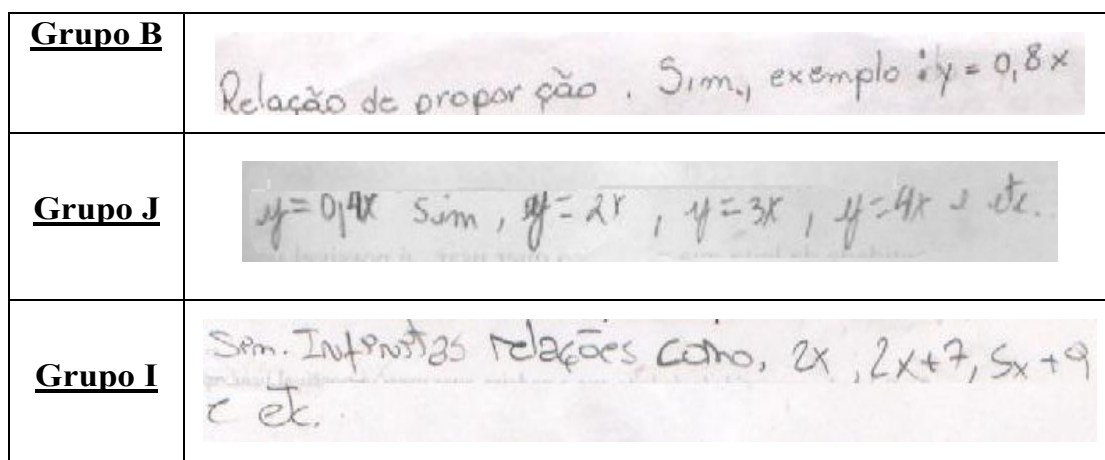 Grupo B
Relação de proporção. Sim, exemplo: y = 0,8x
Grupo J
y = 0,4x Sim, y = 2x, y = 3x, y = 4x e etc.
Grupo I
Sim. Infinitas relações como, 2x, 2x+7, 5x+9
e etc.